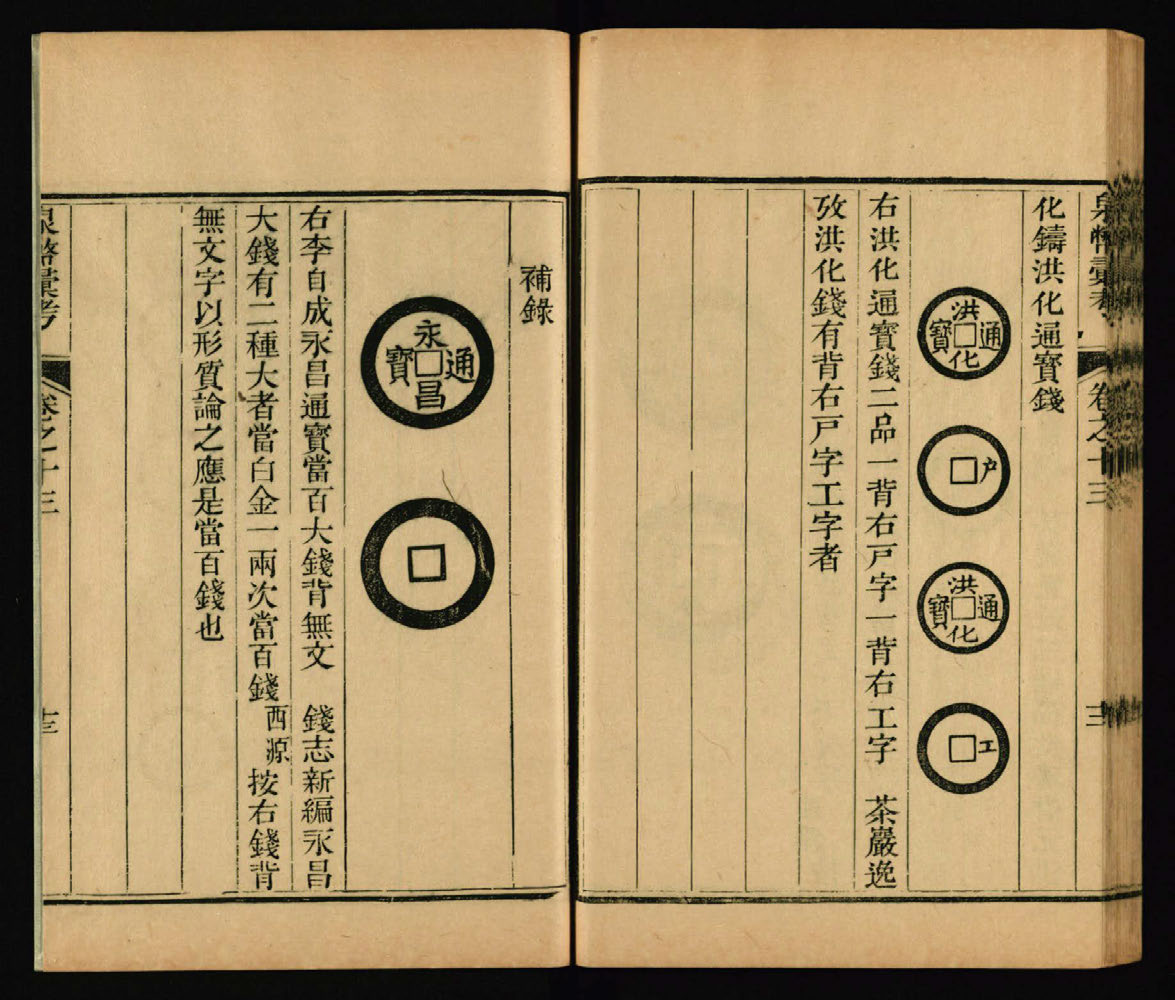 泉幣彙考
卷之十三
三
化鑄洪化通寶錢
洪化通寶
戸
洪化通寶
工
右洪化通寶錢二品一背右戸字一背右工字　茶巖逸
攷洪化錢有背右戸字工字者
補錄
永昌通寶
右李自成永昌通寶當百大錢背無文　錢志新編永昌
大錢有二種大者當白金一兩次當百錢西源按右錢背
無文字以形質論之應是當百錢也
泉幣彙考
卷之十三